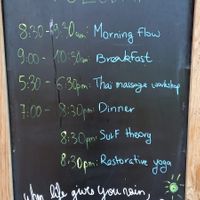 8:30 - 9:30am: Morning flow
9:00 - 10:30am: Breakfast
5:30 - 6:30pm: Thai massage workshop
7:00 - 8:30pm: Dinner
8:30pm: Surf theory
8:30pm: Restorative yoga
when life gives you rain,